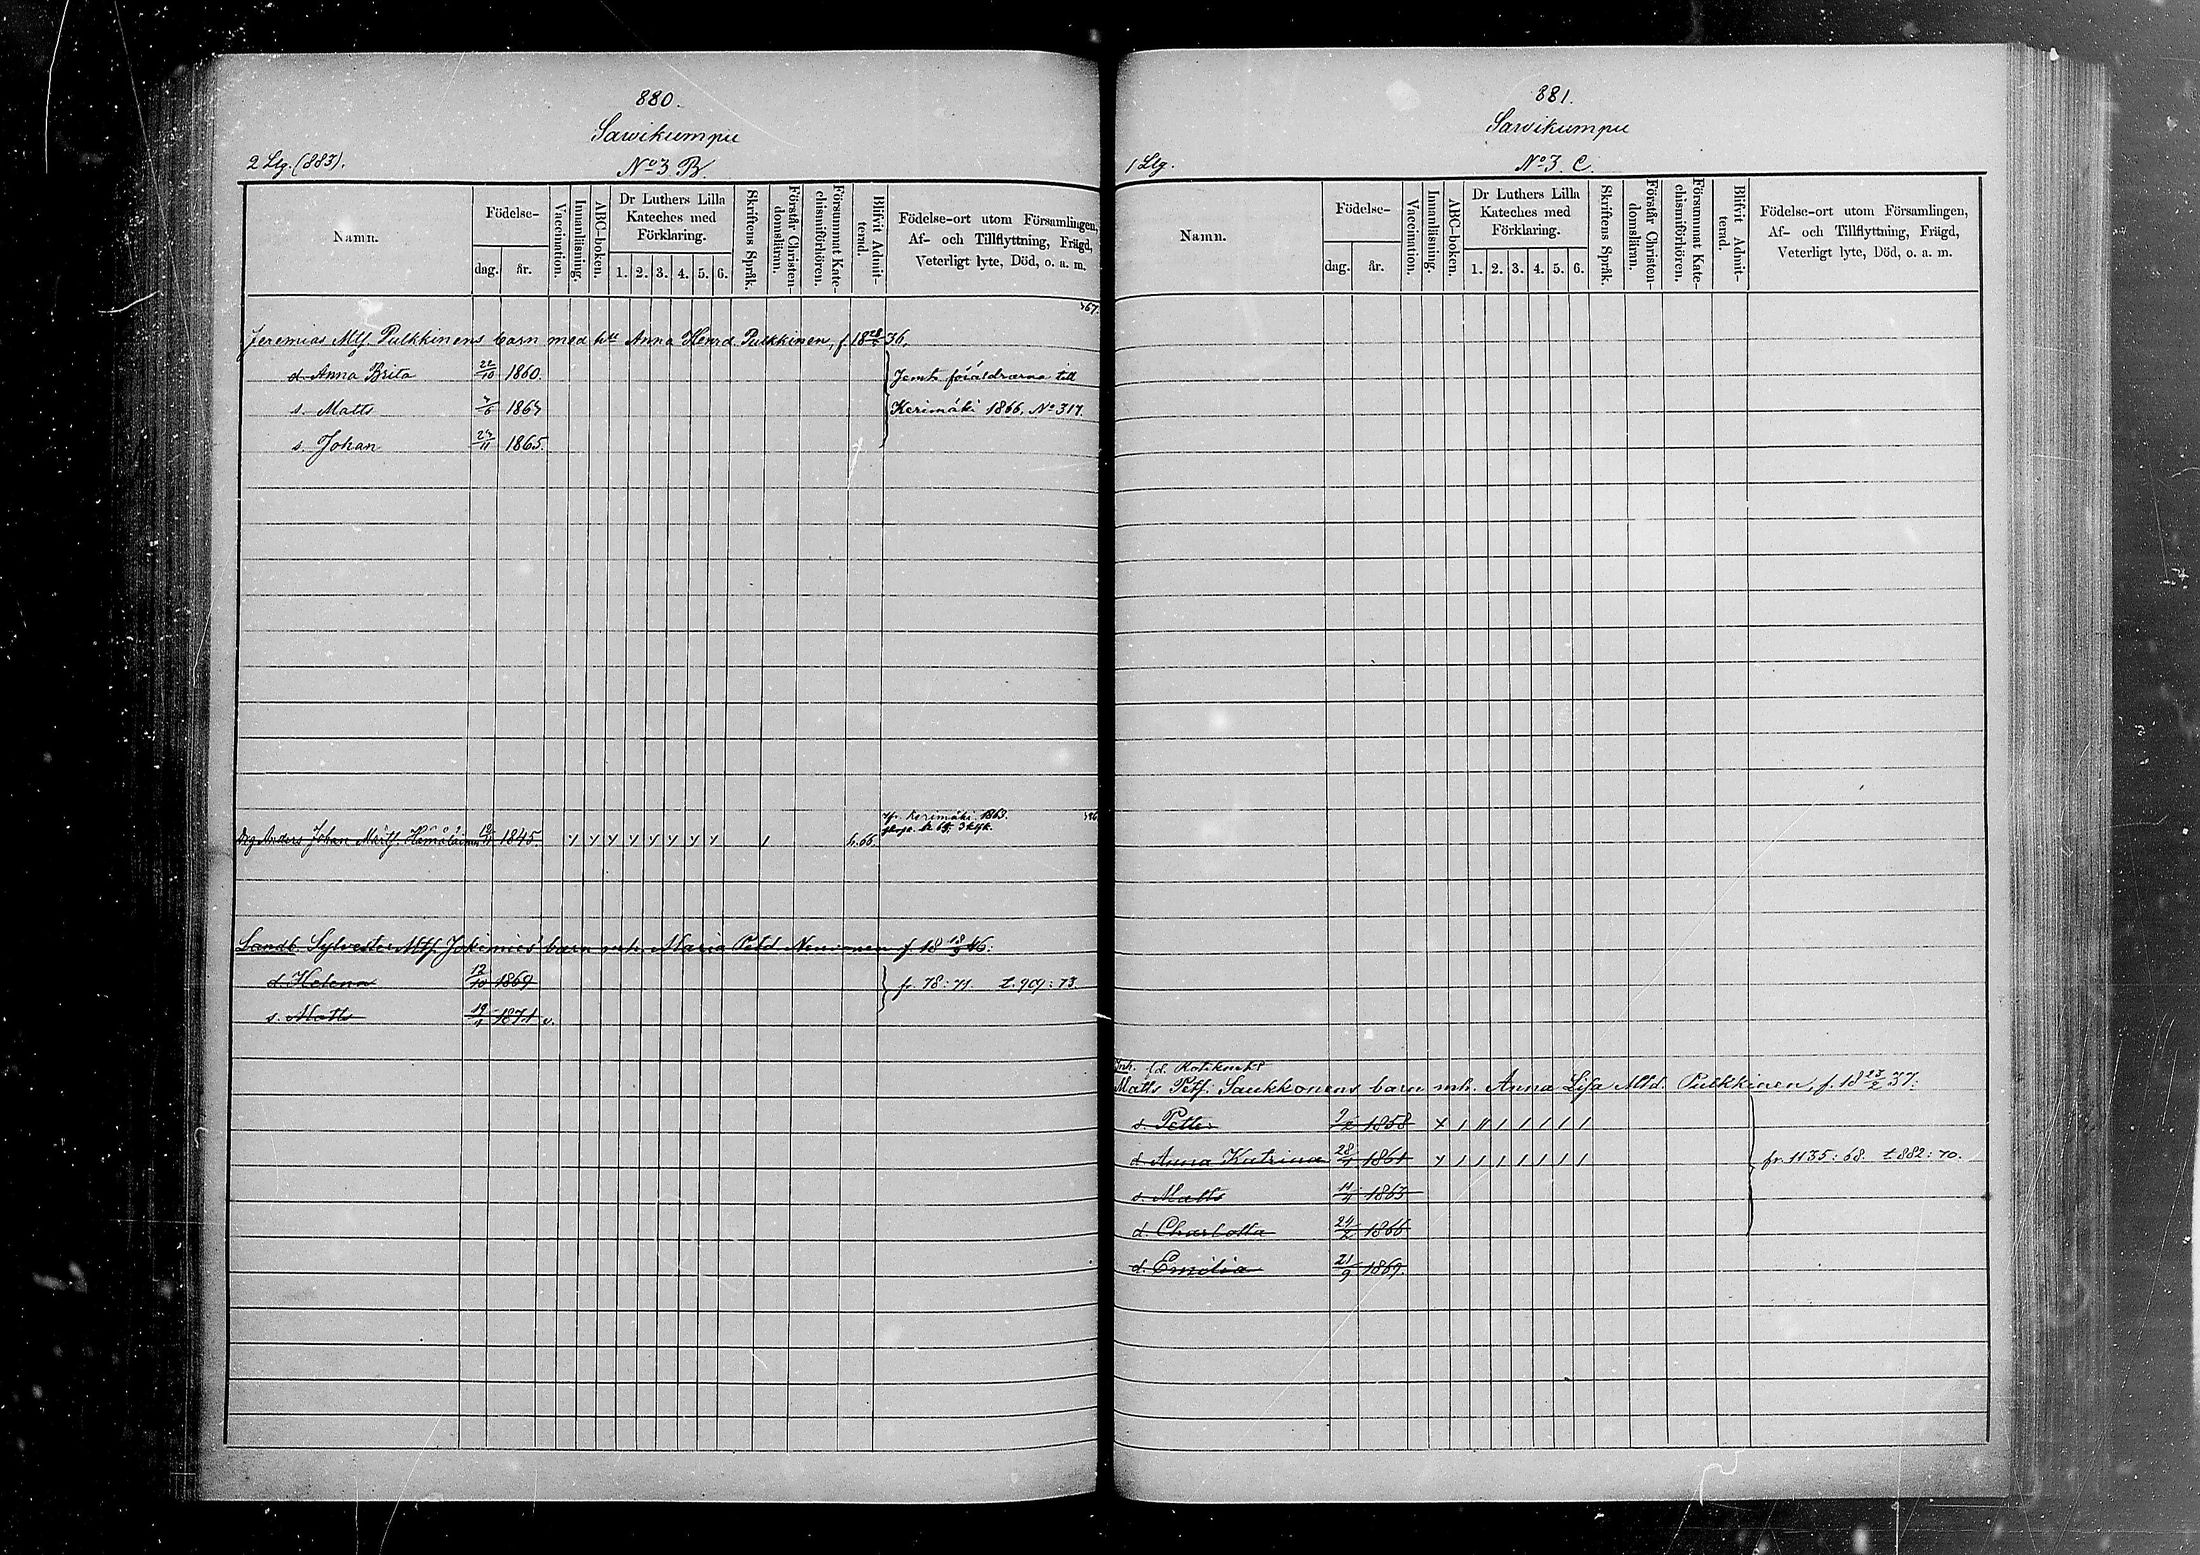 880.
Sawikumpu
2 Llg. (883). No 3 B.
Namn.
Födelse-
dag. år.
Vaccination.
Innanläsning.
ABC-boken.
Dr Luthers Lilla Kateches med Förklaring.
1. 2. 3. 4. 5. 6.
Skriftens Språk.
Förstår Christendomsläran.
Försummat Katechismiförhören.
Blifvit Admitterad.
Födelse-ort utom Församlingen,
Af- och Tillflyttning, Frägd,
Veterligt lyte, Död, o. a. m.
Jeremias Mtf. Pulkkinens barn med h. Anna Henrd. Pulkkinen, f. 18 36.
d. Anna Brita 22/10 1860. Jemte föräldrarna till
s. Matts 1864 Kerimäki 1866. No 317.
s. Johan 1865.
fr. Kerimäki 1863.
Anders Johan Hämäläinen 1845 66
Landb. Sylvester Mtf. Jokimies' barn mh. Maria Petd f. 18 18/9 46.
d. Helena 12/10 1869 fr. 78: 71. t. 909: 73.
s. Matts 1871 v.
881.
Sawikumpu
1 Llg. No 3. C.
Namn.
Födelse-
dag. år.
Vaccination.
Innanläsning.
ABC-boken.
Dr Luthers Lilla Kateches med Förklaring.
1. 2. 3. 4. 5. 6.
Skriftens Språk.
Förstår Christendomsläran.
Försummat Katechismiförhören.
Blifvit Admitterad.
Födelse-ort utom Församlingen,
Af- och Tillflyttning, Frägd,
Veterligt lyte, Död, o. a. m.
Inh.
Matts Petf. Saukkonens barn mh. Anna Lisa Mtd. Pulkkinen, f. 18 23/2 37.
s. Petter 1858
d. Anna Katrina 1861 fr. 1135: 68. t. 882: 70.
s. Matts 1863
d. Charlotta 24/2 1866
d. Emilia 21/9 1869.